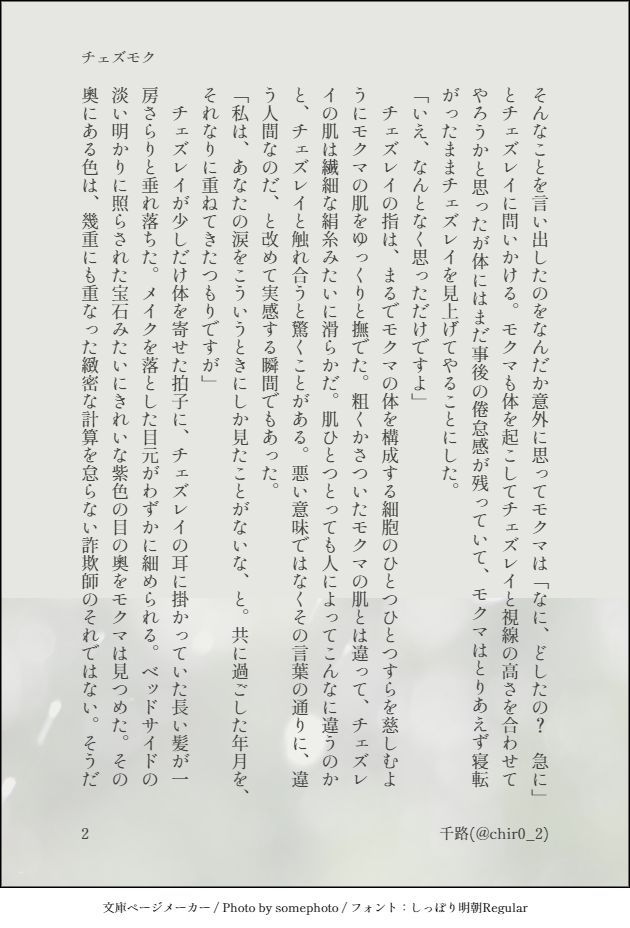 チェズモク
そんなことを言い出したのをなんだか意外に思ってモクマは「なに、どしたの？　急に」
とチェズレイに問いかける。モクマも体を起こしてチェズレイと視線の高さを合わせて
やろうかと思ったが体にはまだ事後の倦怠感が残っていて、モクマはとりあえず寝転
がったままチェズレイを見上げてやることにした。
「いえ、なんとなく思っただけですよ」
　チェズレイの指は、まるでモクマの体を構成する細胞のひとつひとつすらを慈しむよ
うにモクマの肌をゆっくりと撫でた。粗くかさついたモクマの肌とは違って、チェズレ
イの肌は繊細な絹糸みたいに滑らかだ。肌ひとつとっても人によってこんなに違うのか
と、チェズレイと触れ合うと驚くことがある。悪い意味ではなくその言葉の通りに、違
う人間なのだ、と改めて実感する瞬間でもあった。
「私は、あなたの涙をこういうときにしか見たことがないな、と。共に過ごした年月を、
それなりに重ねてきたつもりですが」
　チェズレイが少しだけ体を寄せた拍子に、チェズレイの耳に掛かっていた長い髪が一
房さらりと垂れ落ちた。メイクを落とした目元がわずかに細められる。ベッドサイドの
淡い明かりに照らされた宝石みたいにきれいな紫色の目の奥をモクマは見つめた。その
奥にある色は、幾重にも重なった緻密な計算を怠らない詐欺師のそれではない。そうだ
2
千路(@chir0_2)
文庫ページメーカー / Photo by somephoto / フォント：しっぽり明朝Regular